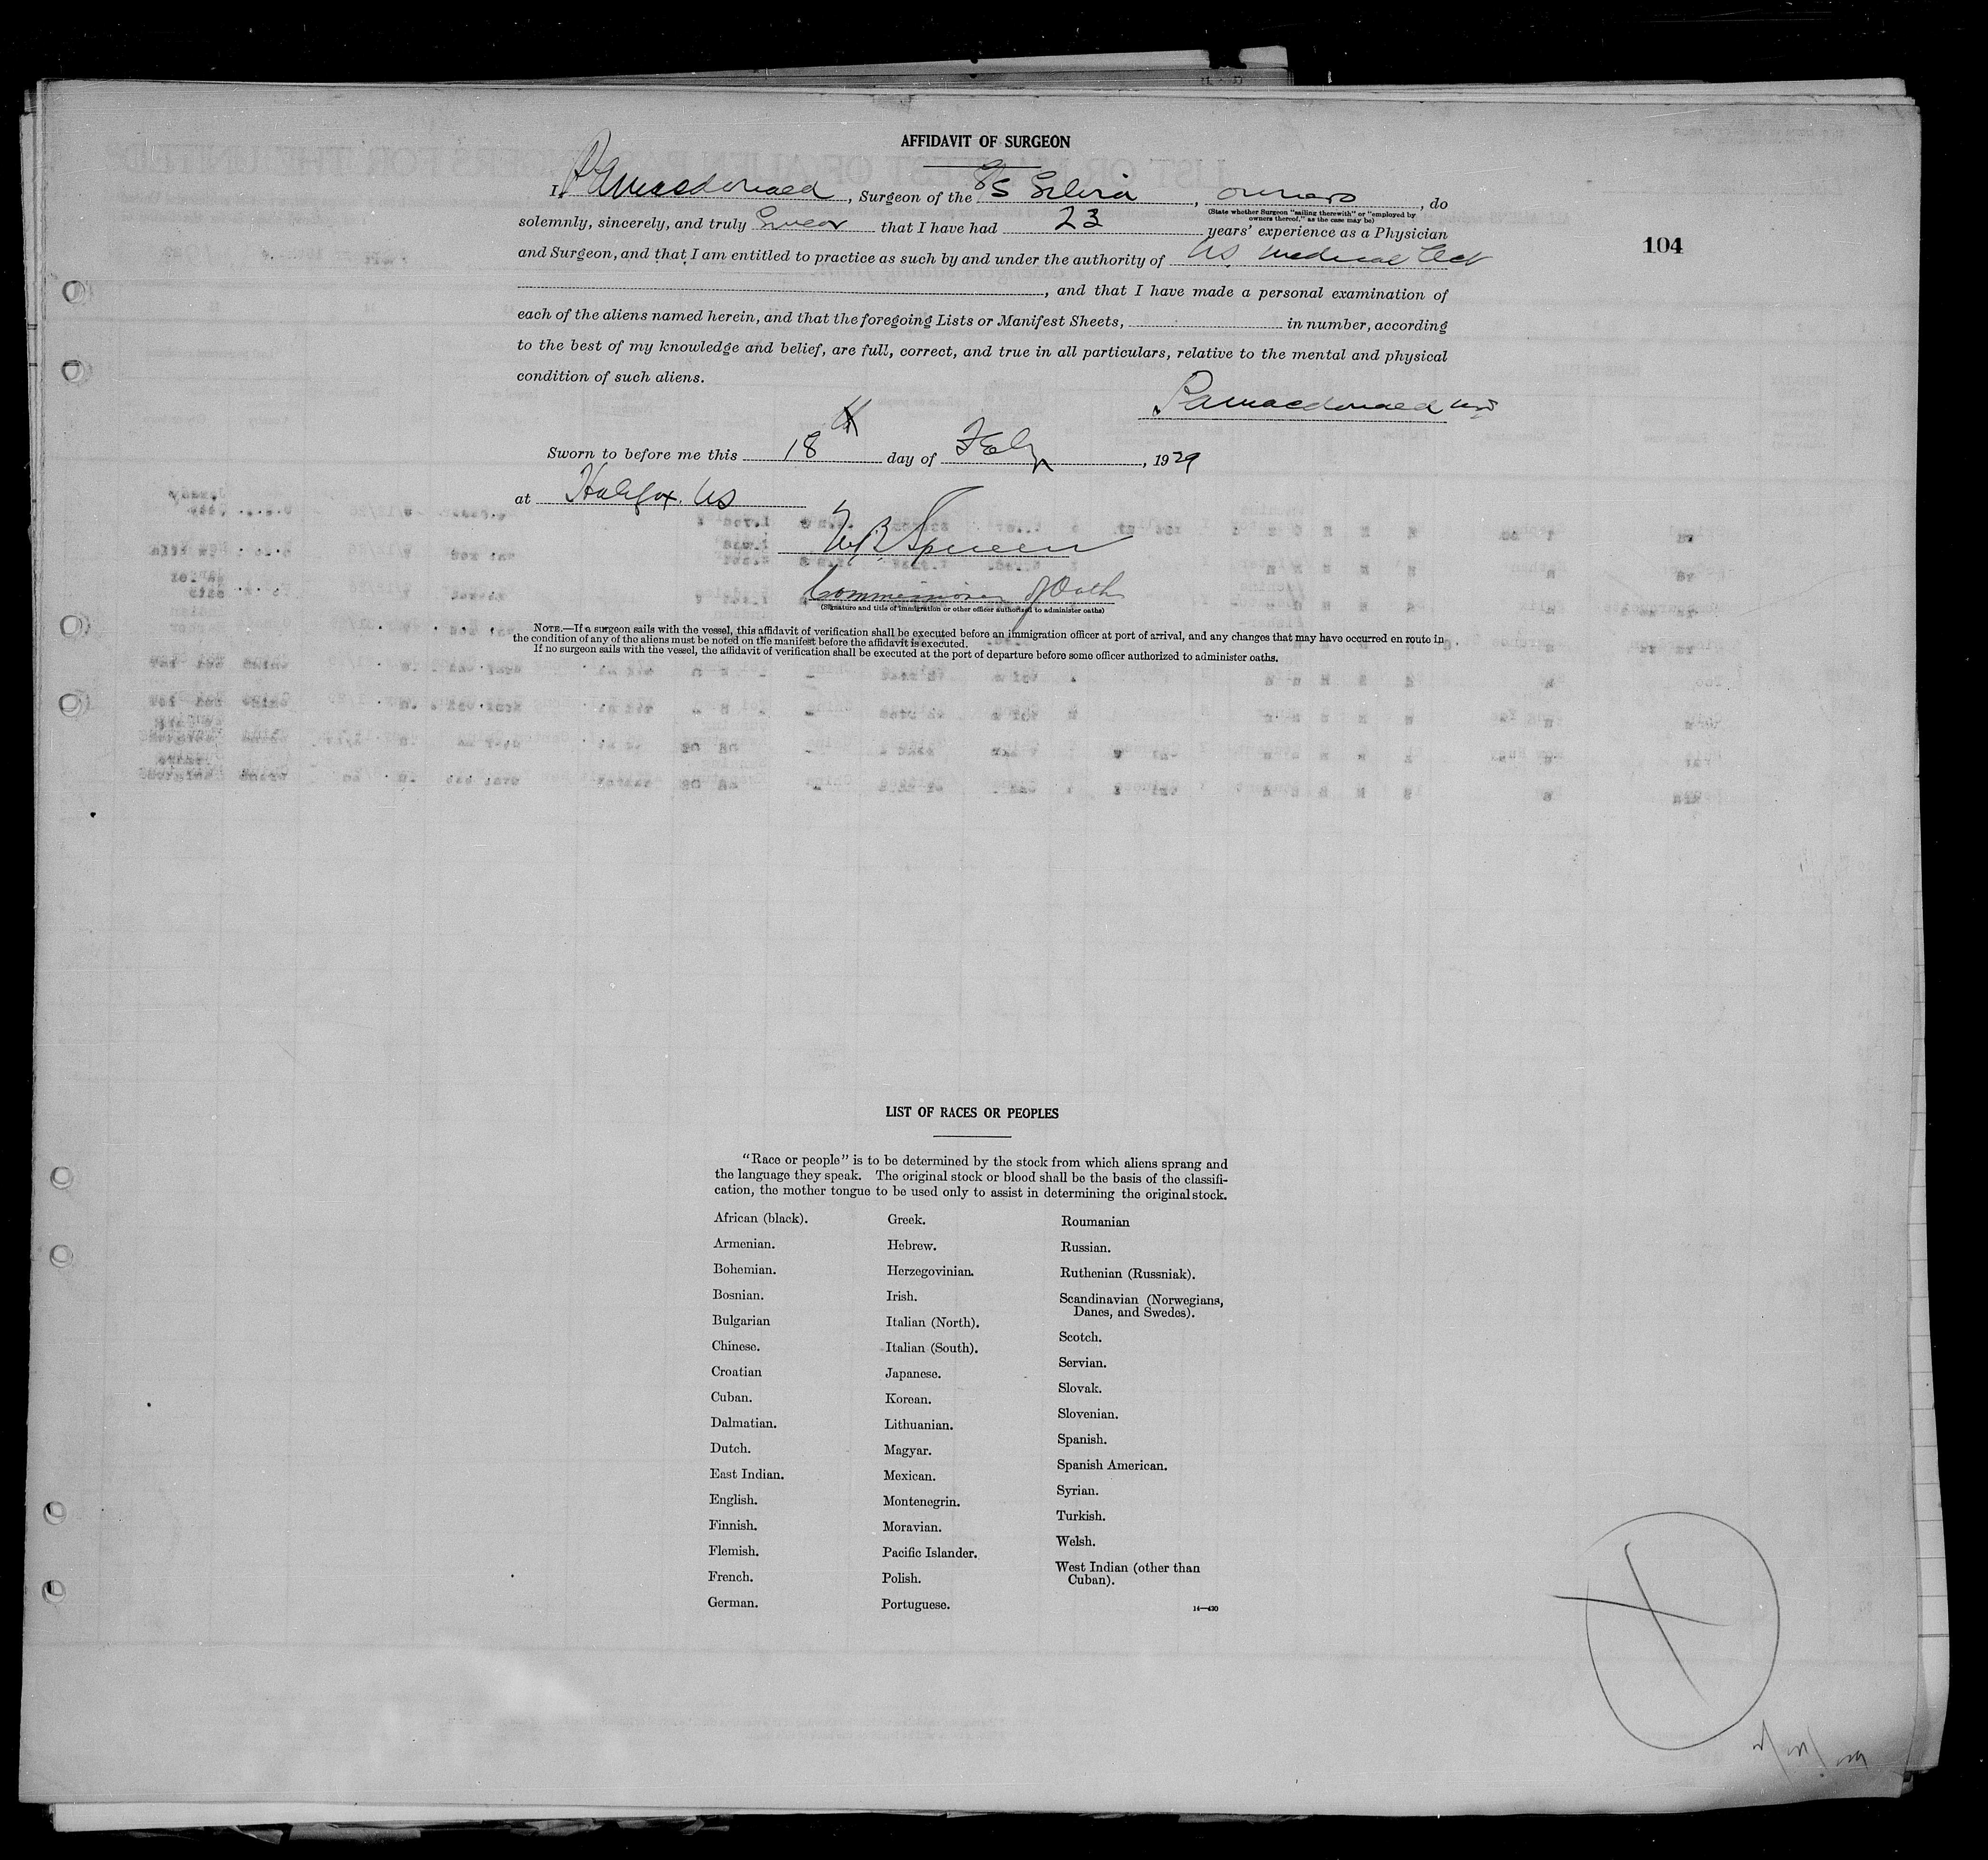 AFFIDAVIT OF SURGEON
I, P A Macdonald, Surgeon of the SS Silvia, owners, do
(State whether Surgeon "sailing therewith" or "employed by
owners thereof," as the case may be)
solemnly, sincerely, and truly Swear that I have had 23 years' experience as a Physician
104
and Surgeon, and that I am entitled to practice as such by and under the authority of NS Medical Act
, and that I have made a personal examination of
each of the aliens named herein, and that the foregoing Lists or Manifest Sheets, in number, according
to the best of my knowledge and belief, are full, correct, and true in all particulars, relative to the mental and physical
condition of such aliens.
P A Macdonald MD
Sworn to before me this 18th day of Feby, 1929
at Halifax. NS
Commissioner of Oaths
(Signature and title of immigration or other officer authorized to administer oaths)
NOTE.—If a surgeon sails with the vessel, this affidavit of verification shall be executed before an immigration officer at port of arrival, and any changes that may have occurred en route in
the condition of any of the aliens must be noted on the manifest before the affidavit is executed.
If no surgeon sails with the vessel, the affidavit of verification shall be executed at the port of departure before some officer authorized to administer oaths.
LIST OF RACES OR PEOPLES
"Race or people" is to be determined by the stock from which aliens sprang and
the language they speak. The original stock or blood shall be the basis of the classifi-
cation, the mother tongue to be used only to assist in determining the original stock.
African (black).
Armenian.
Bohemian.
Bosnian.
Bulgarian
Chinese.
Croatian
Cuban.
Dalmatian.
Dutch.
East Indian.
English.
Finnish.
Flemish.
French.
German.
Greek.
Hebrew.
Herzegovinian.
Irish.
Italian (North).
Italian (South).
Japanese.
Korean.
Lithuanian.
Magyar.
Mexican.
Montenegrin.
Moravian.
Pacific Islander.
Polish.
Portuguese.
Roumanian
Russian.
Ruthenian (Russniak).
Scandinavian (Norwegians,
Danes, and Swedes).
Scotch.
Servian.
Slovak.
Slovenian.
Spanish.
Spanish American.
Syrian.
Turkish.
Welsh.
West Indian (other than
Cuban).
14—430